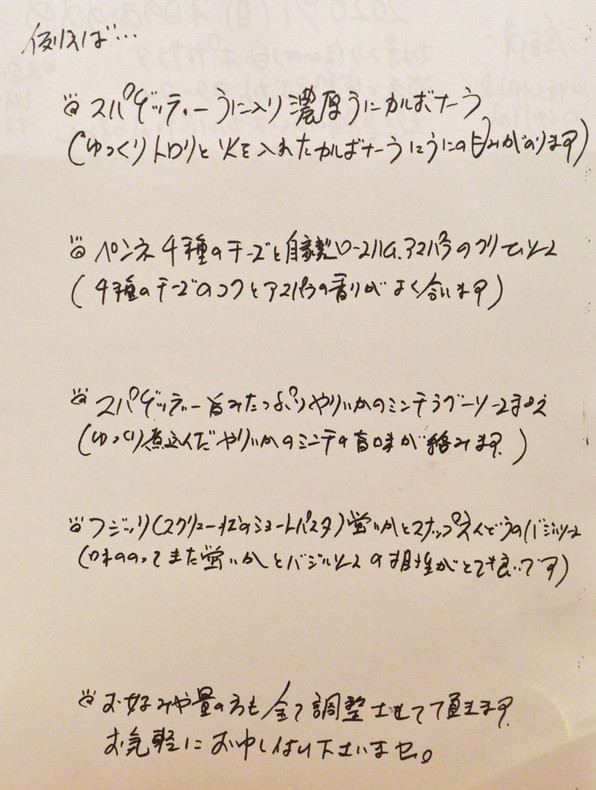 例えば…
スパゲッティーうに入り濃厚うにカルボナーラ
(ゆっくりトロリと火を入れたカルボナーラにうにの甘みがのります)
ペンネ 4種のチーズと自家製ロースハム、アスパラのクリームソース
(4種のチーズのコクとアスパラの香りがよく合います)
スパゲッティー旨みたっぷりやりいかのミンチラグーソースまぜ
(ゆっくり煮込んだやりいかのミンチの旨味が絡みます。)
フジッリ(スクリュー状のショートパスタ)蛍いかとスナップえんどうのバジルソース
(味ののってきた蛍いかとバジルソースの相性がとても良いです)
お好みや量の方も全て調整させて頂きます。
お気軽にお申し付け下さいませ。